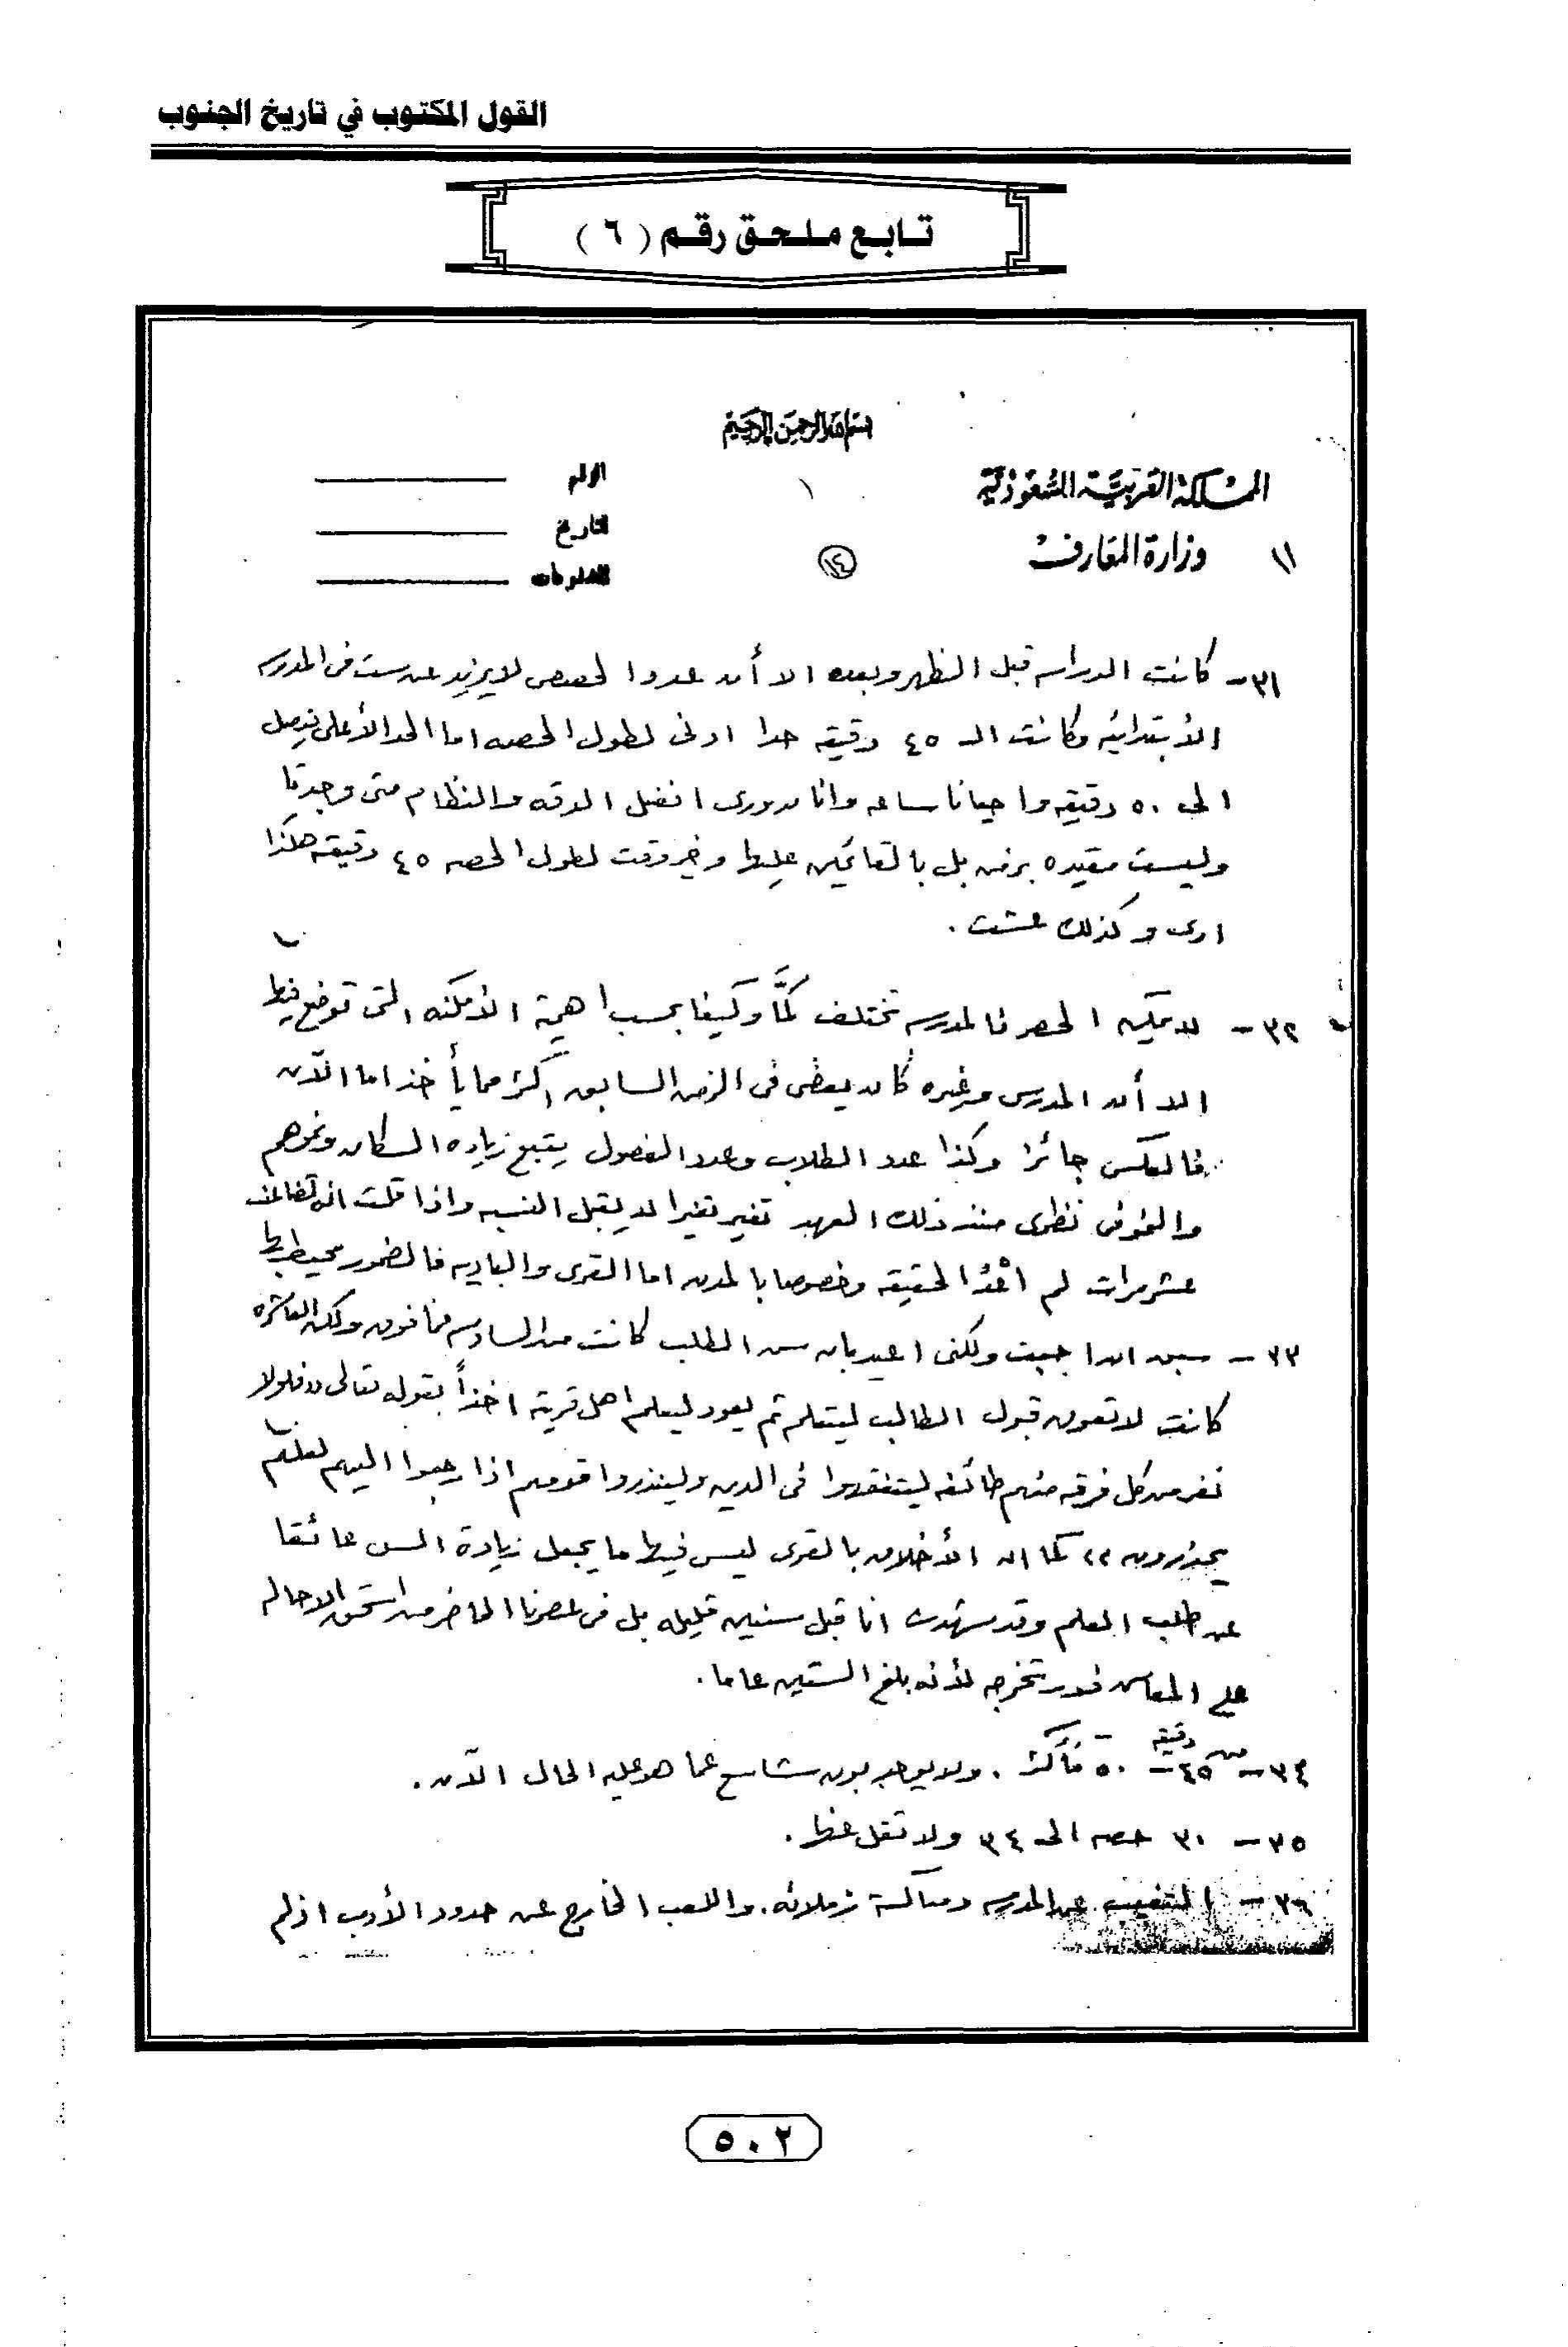 القول المكتوب في تاريخ الجنوب
تابع ملحق رقم ( ٦ )
بسم الله الرحمن الرحيم
المملكة العربية السعودية
وزارة المعارف
١١
١
١٤
الرقم
التاريخ
٣١ - كانت الدراسه قبل الظهر وبعده الا أن عددا لحصص لا يزيد عن ست فى المدرسه
الأبتدائيه وكانت الـ ٤٥ دقيقه حدا ادنى لطول الحصه اما الحد الأعلى فيصل
الى ٥٠ دقيقه واحيانا ساعه وانا بدورى افضل الدقه والنظام متى وجدتا
وليست مقيده بزمن بل بالقائمين عليها وخير وقت لطول الحصه ٤٥ دقيقه هكذا
ارى وكذلك عشت .
٣٢ - لا يمكن الحصر فالمدرسه تختلف كمًّا وكيفا بحسب اهمية الأمكنه التى توضع فيها
الا أن المدرس وغيره كان يعطى فى الزمن السابق اكثر مما يأخذ اما الآن
فالعكس جائز وكذا عدد الطلاب وعدد الفصول يتبع زياده السكان ونموهم
والنمو فى نظرى منذ ذلك العهد تغير تغيرا لا يقبل النسبه واذا قلت انه تضاعف
عشر مرات لم أعْدُ الحقيقه وخصوصا بالمدن اما القرى والباديه فالضمور محيط بها
٣٣ - سبق ان اجبت ولكنى اعيد بان سن الطلب كانت من السادسه فما فوق ولكن العاشره
كانت لا تعوق قبول الطالب ليتعلم ثم يعود ليعلم اهل قريته اخذاً بقوله تعالى " فلولا
نفر من كل فرقه منهم طائفه ليتفقهوا فى الدين ولينذروا قومهم اذا رجعوا اليهم لعلهم
يحذرون " كما ان الأخلاق بالقرى ليس فيها ما يجعل زيادة السن عائقا
عن طلب العلم وقد شهدت انا قبل سنين قليله بل فى عصرنا الحاضر من استحق الاحاله
على المعاش فور تخرجه لأنه بلغ الستين عاما .
٣٤ - من ٤٥ - ٥٠ دقيقه فأكثر . ولا يوجد بون شاسع عما هو عليه الحال الآن .
٣٥ - ٣٠ حصه الى ٣٤ ولا تقل عنها .
٣٦ - التغيب عن المدرسه ومعاكسة زملائه . واللعب الخارج عن حدود الأدب اذ لم
٥٠٢